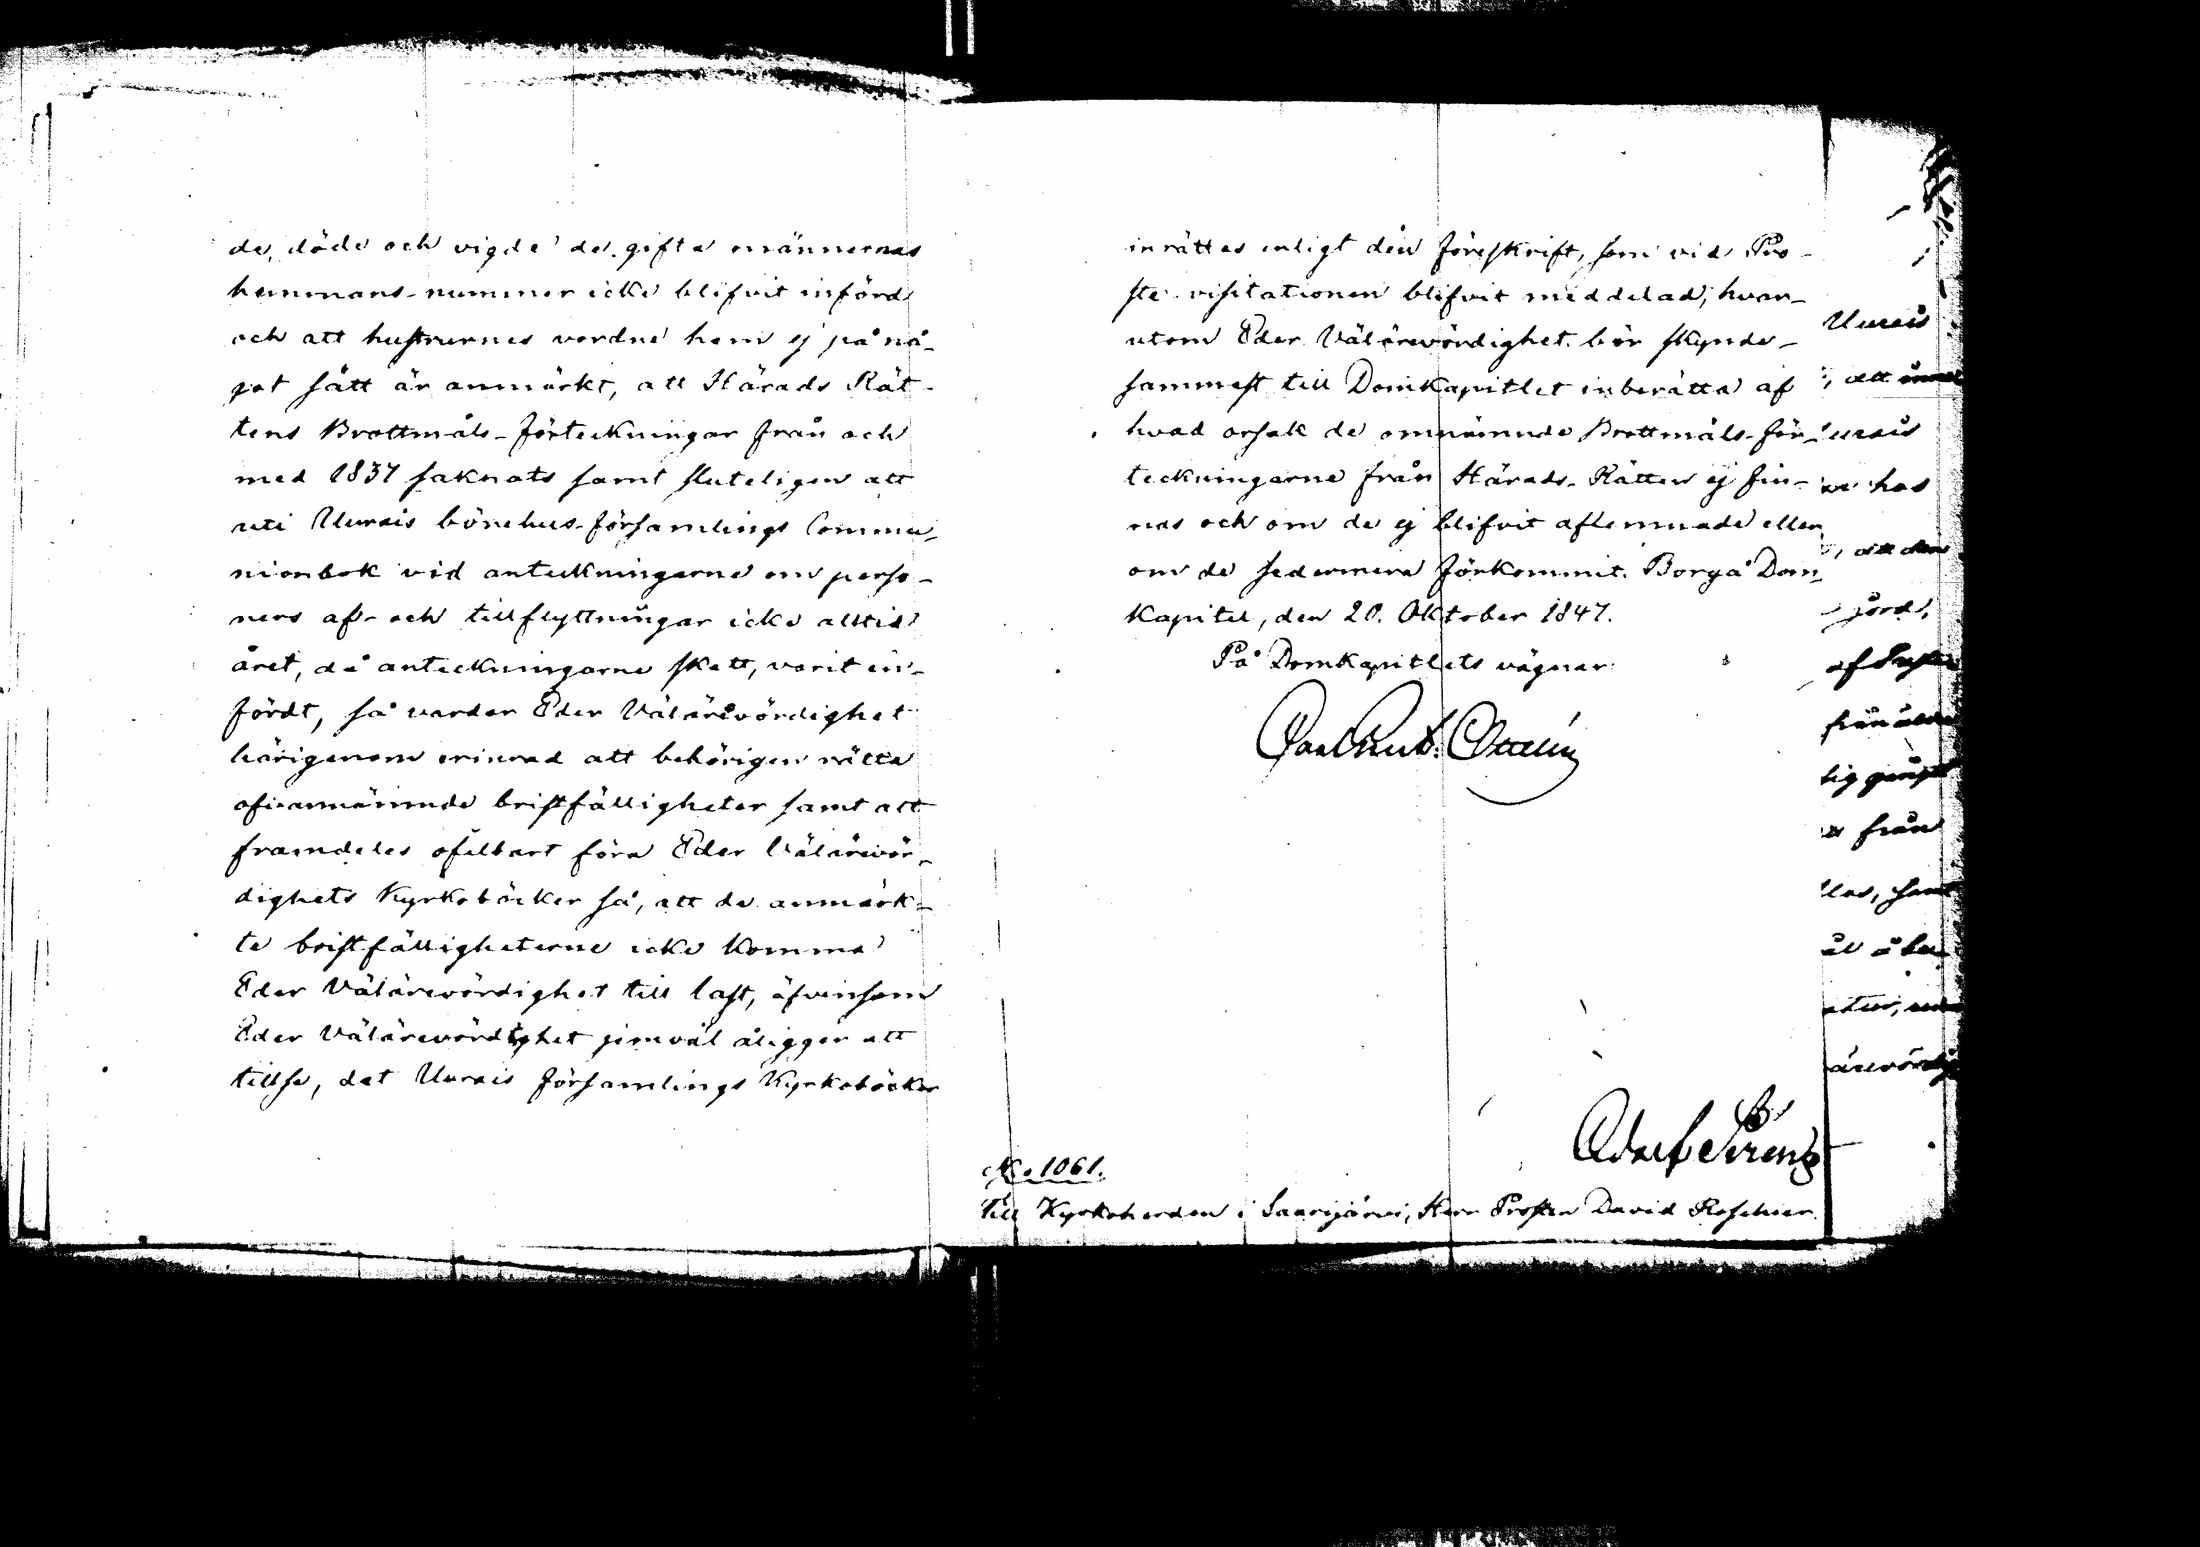 de, döde och vigde de gifta männernas
hemmans-nummer icke blifvit införd
och att hustrurnes vordne hem ej på nå-
got sätt är anmärkt, att Härads Rät-
tens Brottmåls-förteckningar från och
med 1837 saknats samt sluteligen att
uti Uurais bönehus-församlings Commu-
nionbok vid anteckningarne om perso-
ners af- och tillflyttningar icke alltid
året, då anteckningarne skett, varit in-
fördt, så varder Eder Välärevördighet
härigenom erinrad att behörigen rätta
ofvannämnde bristfälligheter samt att
framdeles ofelbart föra Eder Välärevör-
dighets Kyrkoböcker så, att de anmärk-
te bristfälligheterne icke komma
Eder Välärevördighet till last, äfvensom
Eder Välärevördighet jemväl åligger att
tillse, det Uurais församlings Kyrkoböcker
inrättas enligt den föreskrift, som vid Pro-
ste-visitationen blifvit meddelad; hvar-
utom Eder Välärevördighet bör skynde-
sammast till Domkapitlet inberätta af
hvad orsak de omnämnde Brottmåls-för-
teckningarne från Härads-Rätten ej fin-
nas och om de ej blifvit aflemnade eller
om de sedermera förkommit. Borgå Dom-
kapitel, den 20. Oktober 1847.
På Domkapitlets vägnar
Carl Gust. Ottelin
Adolf Sirén
No 1061.
Till Kyrkoherden i Saarijärvi, Herr Prosten David Roschier.
Uurais
, att
urais
hos
, att den
jord,
af
från
tig
från
las, samt
ärevördig